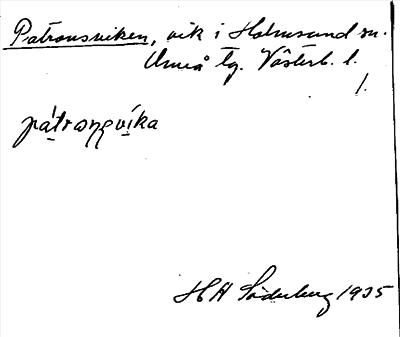 Patronsviken, vik i Holmsund sn.
Umeå tg. Västerb. l.
1.
pátraŋsvíka
H A Söderberg 1935